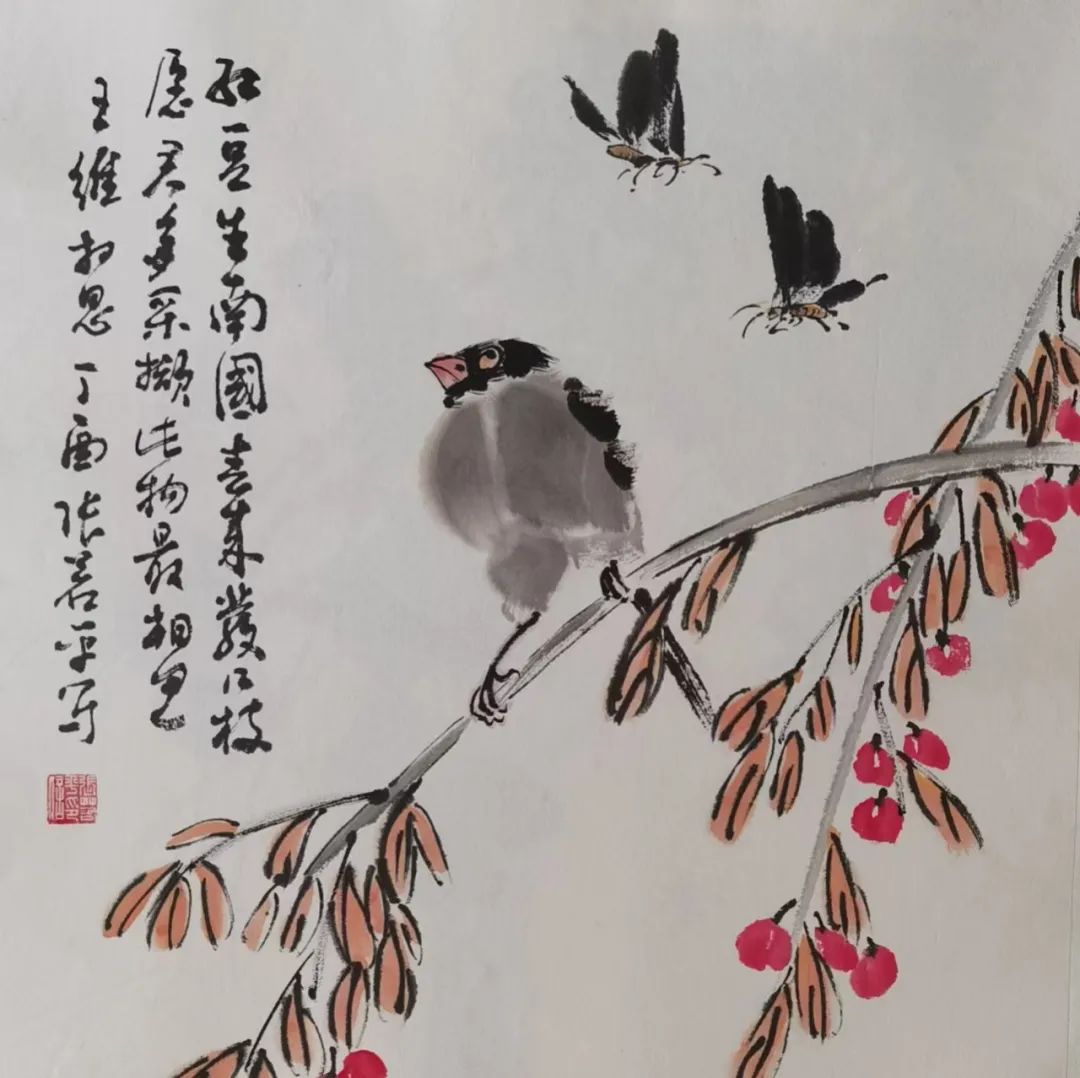 红豆生南國春来發几枝
愿君多采撷此物最相思
王维相思丁酉张若平写